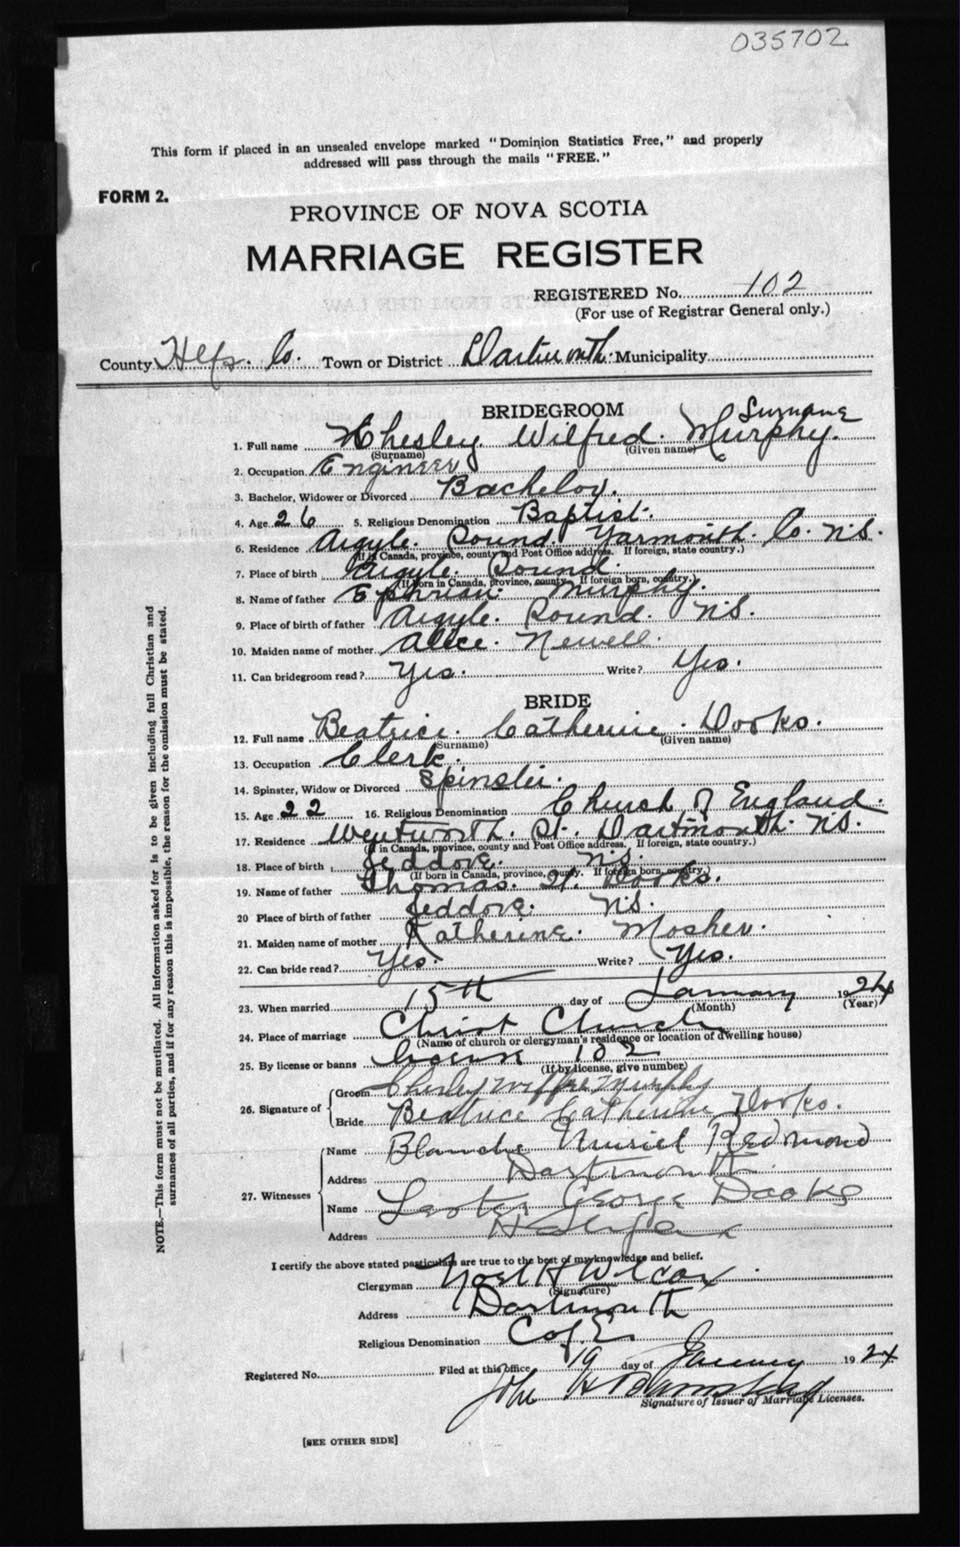 035702
This form if placed in an unsealed envelope marked "Dominion Statistics Free," and properly
addressed will pass through the mails "FREE."
FORM 2.
PROVINCE OF NOVA SCOTIA
MARRIAGE REGISTER
REGISTERED No. 102
(For use of Registrar General only.)
County Hfx. Co. Town or District Dartmouth. Municipality
BRIDEGROOM Surname
1. Full name Chesley Wilfred. Murphy.
(Surname) (Given name)
2. Occupation Engineer
3. Bachelor, Widower or Divorced Bachelor.
4. Age 26 5. Religious Denomination Baptist.
6. Residence Argyle. Sound. Yarmouth. Co. N.S.
(If in Canada, province, county and Post Office address. If foreign, state country.)
7. Place of birth Argyle. Sound.
(If born in Canada, province, county. If foreign born, country.)
8. Name of father Ephriam. Murphy.
9. Place of birth of father Argyle. Sound. N.S.
10. Maiden name of mother Alice. Newell.
11. Can bridegroom read? Yes. Write? Yes.
BRIDE
12. Full name Beatrice. Catherine. Dooks.
(Surname) (Given name)
13. Occupation Clerk.
14. Spinster, Widow or Divorced Spinster.
15. Age 22 16. Religious Denomination Church of England.
17. Residence Wentworth. St. Dartmouth. N.S.
(If in Canada, province, county and Post Office address. If foreign, state country.)
18. Place of birth Jeddore. N.S.
(If born in Canada, province, county. If foreign born, country.)
19. Name of father Thomas. Dooks.
20 Place of birth of father Jeddore. N.S.
21. Maiden name of mother Katherine. Mosher.
22. Can bride read? Yes. Write? Yes.
23. When married 15th day of January 1924
(Month) (Year)
24. Place of marriage Christ Church
(Name of church or clergyman's residence or location of dwelling house)
25. By license or banns license 102
(If by license, give number)
26. Signature of
Groom Chesley Wilfred Murphy
Bride Beatrice Catherine Dooks.
27. Witnesses
Name Blanche Muriel Redmond
Address Dartmouth
Name Lester George Dooks
Address Halifax
I certify the above stated particulars are true to the best of my knowledge and belief.
Clergyman Noel H Wilcox
(Signature)
Address Dartmouth
Religious Denomination C of E.
Registered No. Filed at this office 19 day of January 1924
John
Signature of Issuer of Marriage Licenses.
[SEE OTHER SIDE]
NOTE.—This form must not be mutilated. All information asked for is to be given including full Christian and
surnames of all parties, and if for any reason this is impossible, the reason for the omission must be stated.